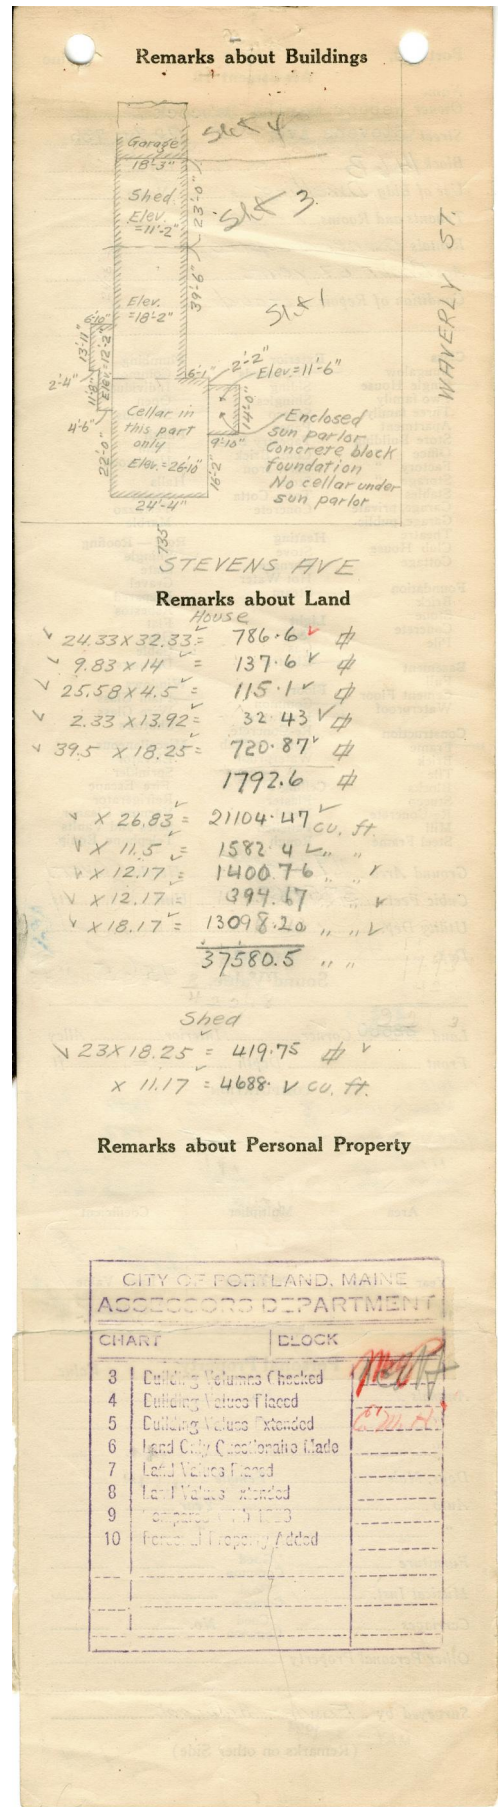 Remarks about Buildings
Garage
18'-3"
Shed
Elev.
=11'-2"
23'-0"
Elev.
=18'-2"
39'-6"
WAVERLY ST.
6'-10"
13'-11"
Elev.=12'-2"
2'-4"
11'-8"
4'-6"
6'-1"
2'-2"
Elev.=11'-6"
14'-0"
9'-10"
Cellar in
this part
only
Elev.=26'-10"
22'-0"
16'-2"
24'-4"
Enclosed
sun parlor
Concrete block
foundation
No cellar under
sun parlor
735
STEVENS AVE
Remarks about Land
House
24.33 X 32.33 = 786.6
9.83 X 14 = 137.6
25.58 X 4.5 = 115.1
2.33 X 13.92 = 32.43
39.5 X 18.25 = 720.87
1792.6
X 26.83 = 21104.47 cu. ft.
X 11.5 = 1582.4 " "
X 12.17 = 1400.76 " "
X 12.17 = 394.67 "
X 18.17 = 13098.20 " "
37580.5 " "
Shed
23 X 18.25 = 419.75
X 11.17 = 4688. cu. ft.
Remarks about Personal Property
CITY OF PORTLAND, MAINE
ASSESSORS DEPARTMENT
CHART BLOCK
3 Building Volumes Checked
4 Building Values Placed
5 Building Values Extended
6 Land Only Questionaire Made
7 Land Values Placed
8 Land Values Extended
9
10 Personal Property Added